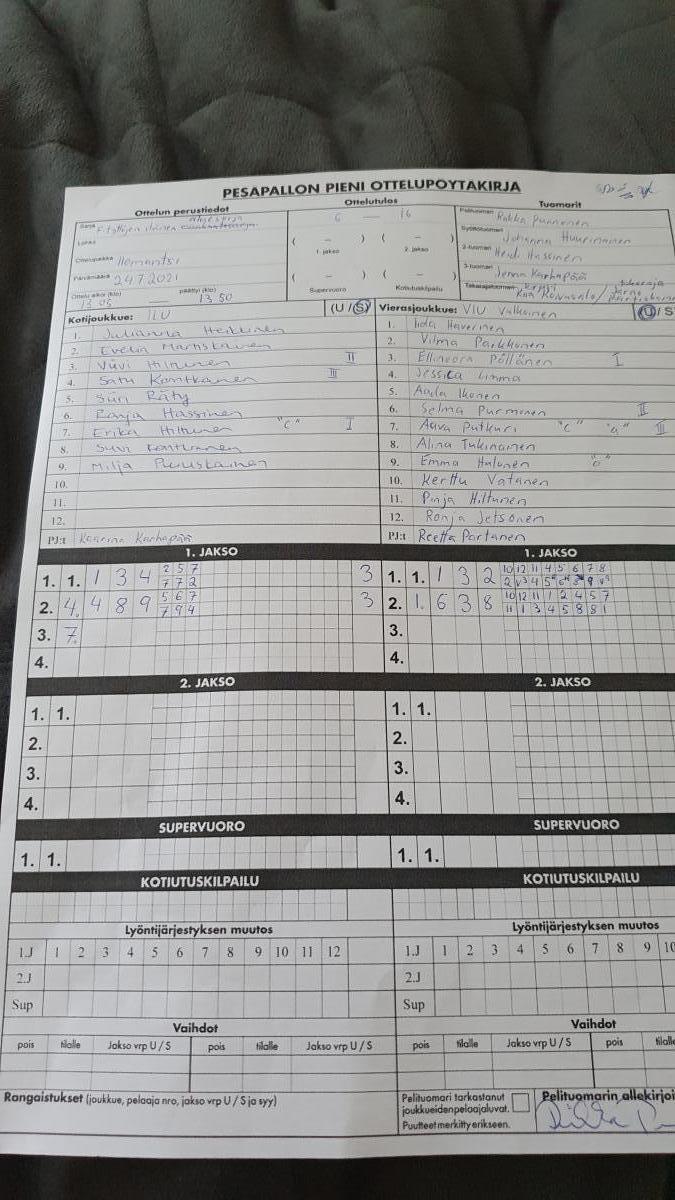 PESAPALLON PIENI OTTELUPÖYTÄKIRJA
Ottelun perustiedot
Ottelutulos
Tuomarit
Sarja F-tyttöjen
6 — 16
Pelituomari
Lohko
( – ) ( – )
Syöttötuomari Johanna Huurinainen
1. jakso
2. jakso
Ottelupaikka Ilomantsi
2-tuomari Heidi Hassinen
Päivämäärä 24.7.2021
( – ) ( – )
3-tuomari Jenna Karhapää
Ottelu alkoi (klo) 13 05
päättyi (klo) 13 50
Supervuoro
Kotiutuskilpailu
Takarajatuomari
Kotijoukkue: IU
(U / S)
Vierasjoukkue: ViU Valkoinen
(U / S
1. Julianna Heikkinen
2. Evelia Martiskainen
3. Viivi Hiltunen II
4. Satu Kontkanen III
5. Suri Räty
6. Ronja Hassinen
7. Erika Hiltunen "C" I
8. Suvi Kontkanen
9. Milja Puruskainen
10.
11.
12.
PJ:t Kaarina Karhapää
1. Iida Haverinen
2. Vilma Parkkonen
3. Ellinoora Pöllänen I
4. Jessica Limma
5. Aada Ikonen
6. Selma Purmonen II
7. Aava Putkuri "C" "a" III
8. Alina Tukiainen
9. Emma Halonen "o"
10. Kerttu Vatanen
11. Pinja Hiltunen
12. Ronja Jetsonen
PJ:t Reetta Partanen
1. JAKSO
1. JAKSO
1. 1. 1 3 4 2 5 7 3
7 7 2
2. 4. 4 8 9 5 6 7 3
7 9 4
3. 7.
4.
1. 1. 1 3 2 10 12 11 4 5 6 7 8
2. 1. 6 3 8 10 12 11 1 2 4 5 7
11 1 3 4 5 8 8 1
3.
4.
2. JAKSO
2. JAKSO
1. 1.
2.
3.
4.
1. 1.
2.
3.
4.
SUPERVUORO
SUPERVUORO
1. 1.
1. 1.
KOTIUTUSKILPAILU
KOTIUTUSKILPAILU
Lyöntijärjestyksen muutos
Lyöntijärjestyksen muutos
1.J 1 2 3 4 5 6 7 8 9 10 11 12
1.J 1 2 3 4 5 6 7 8 9 10
2.J
2.J
Sup
Sup
Vaihdot
Vaihdot
pois tilalle Jakso vrp U / S pois tilalle Jakso vrp U / S
pois tilalle Jakso vrp U / S pois tilalle
Rangaistukset (joukkue, pelaaja nro, jakso vrp U / S ja syy)
Pelituomari tarkastanut
joukkueidenpelaajaluvat.
Puutteet merkitty erikseen.
Pelituomarin allekirjoi